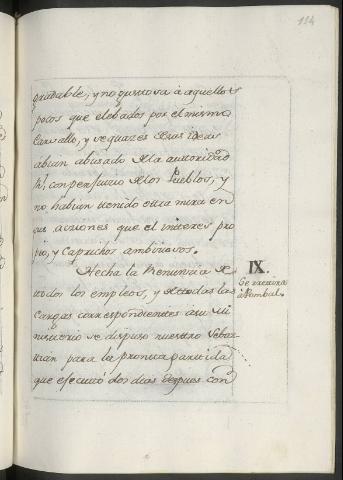 114
gradable, y no gustosa à aquellos
pocos que elebados por el mismo
Carvallo, y sequazes de sus ideas
abian abusado de la autoridad
Rl. con perjuicio de los Pueblos, y
no habian tenido otra mira en
sus acciones que el interes pro
pio, y caprichos ambiciosos.
Hecha la Renuncia de
todos los empleos, y de todas las
Cargas correspondientes a su Mi
nisterio se dispuso nuestro Sebas
tian para la pronta partida
que efecutó dos dias despues con
IX.
Se retira
a Pombal.